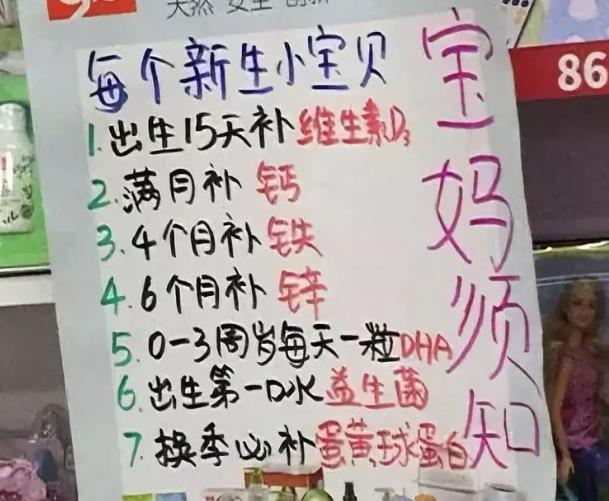 天然 安全
每个新生小宝贝
1.出生15天补维生素D3
2.满月补 钙
3.4个月补 铁
4.6个月补 锌
5.0-3周岁每天一粒DHA
6.出生第一口水益生菌
7.换季必补蛋黄球蛋白
宝妈须知
86